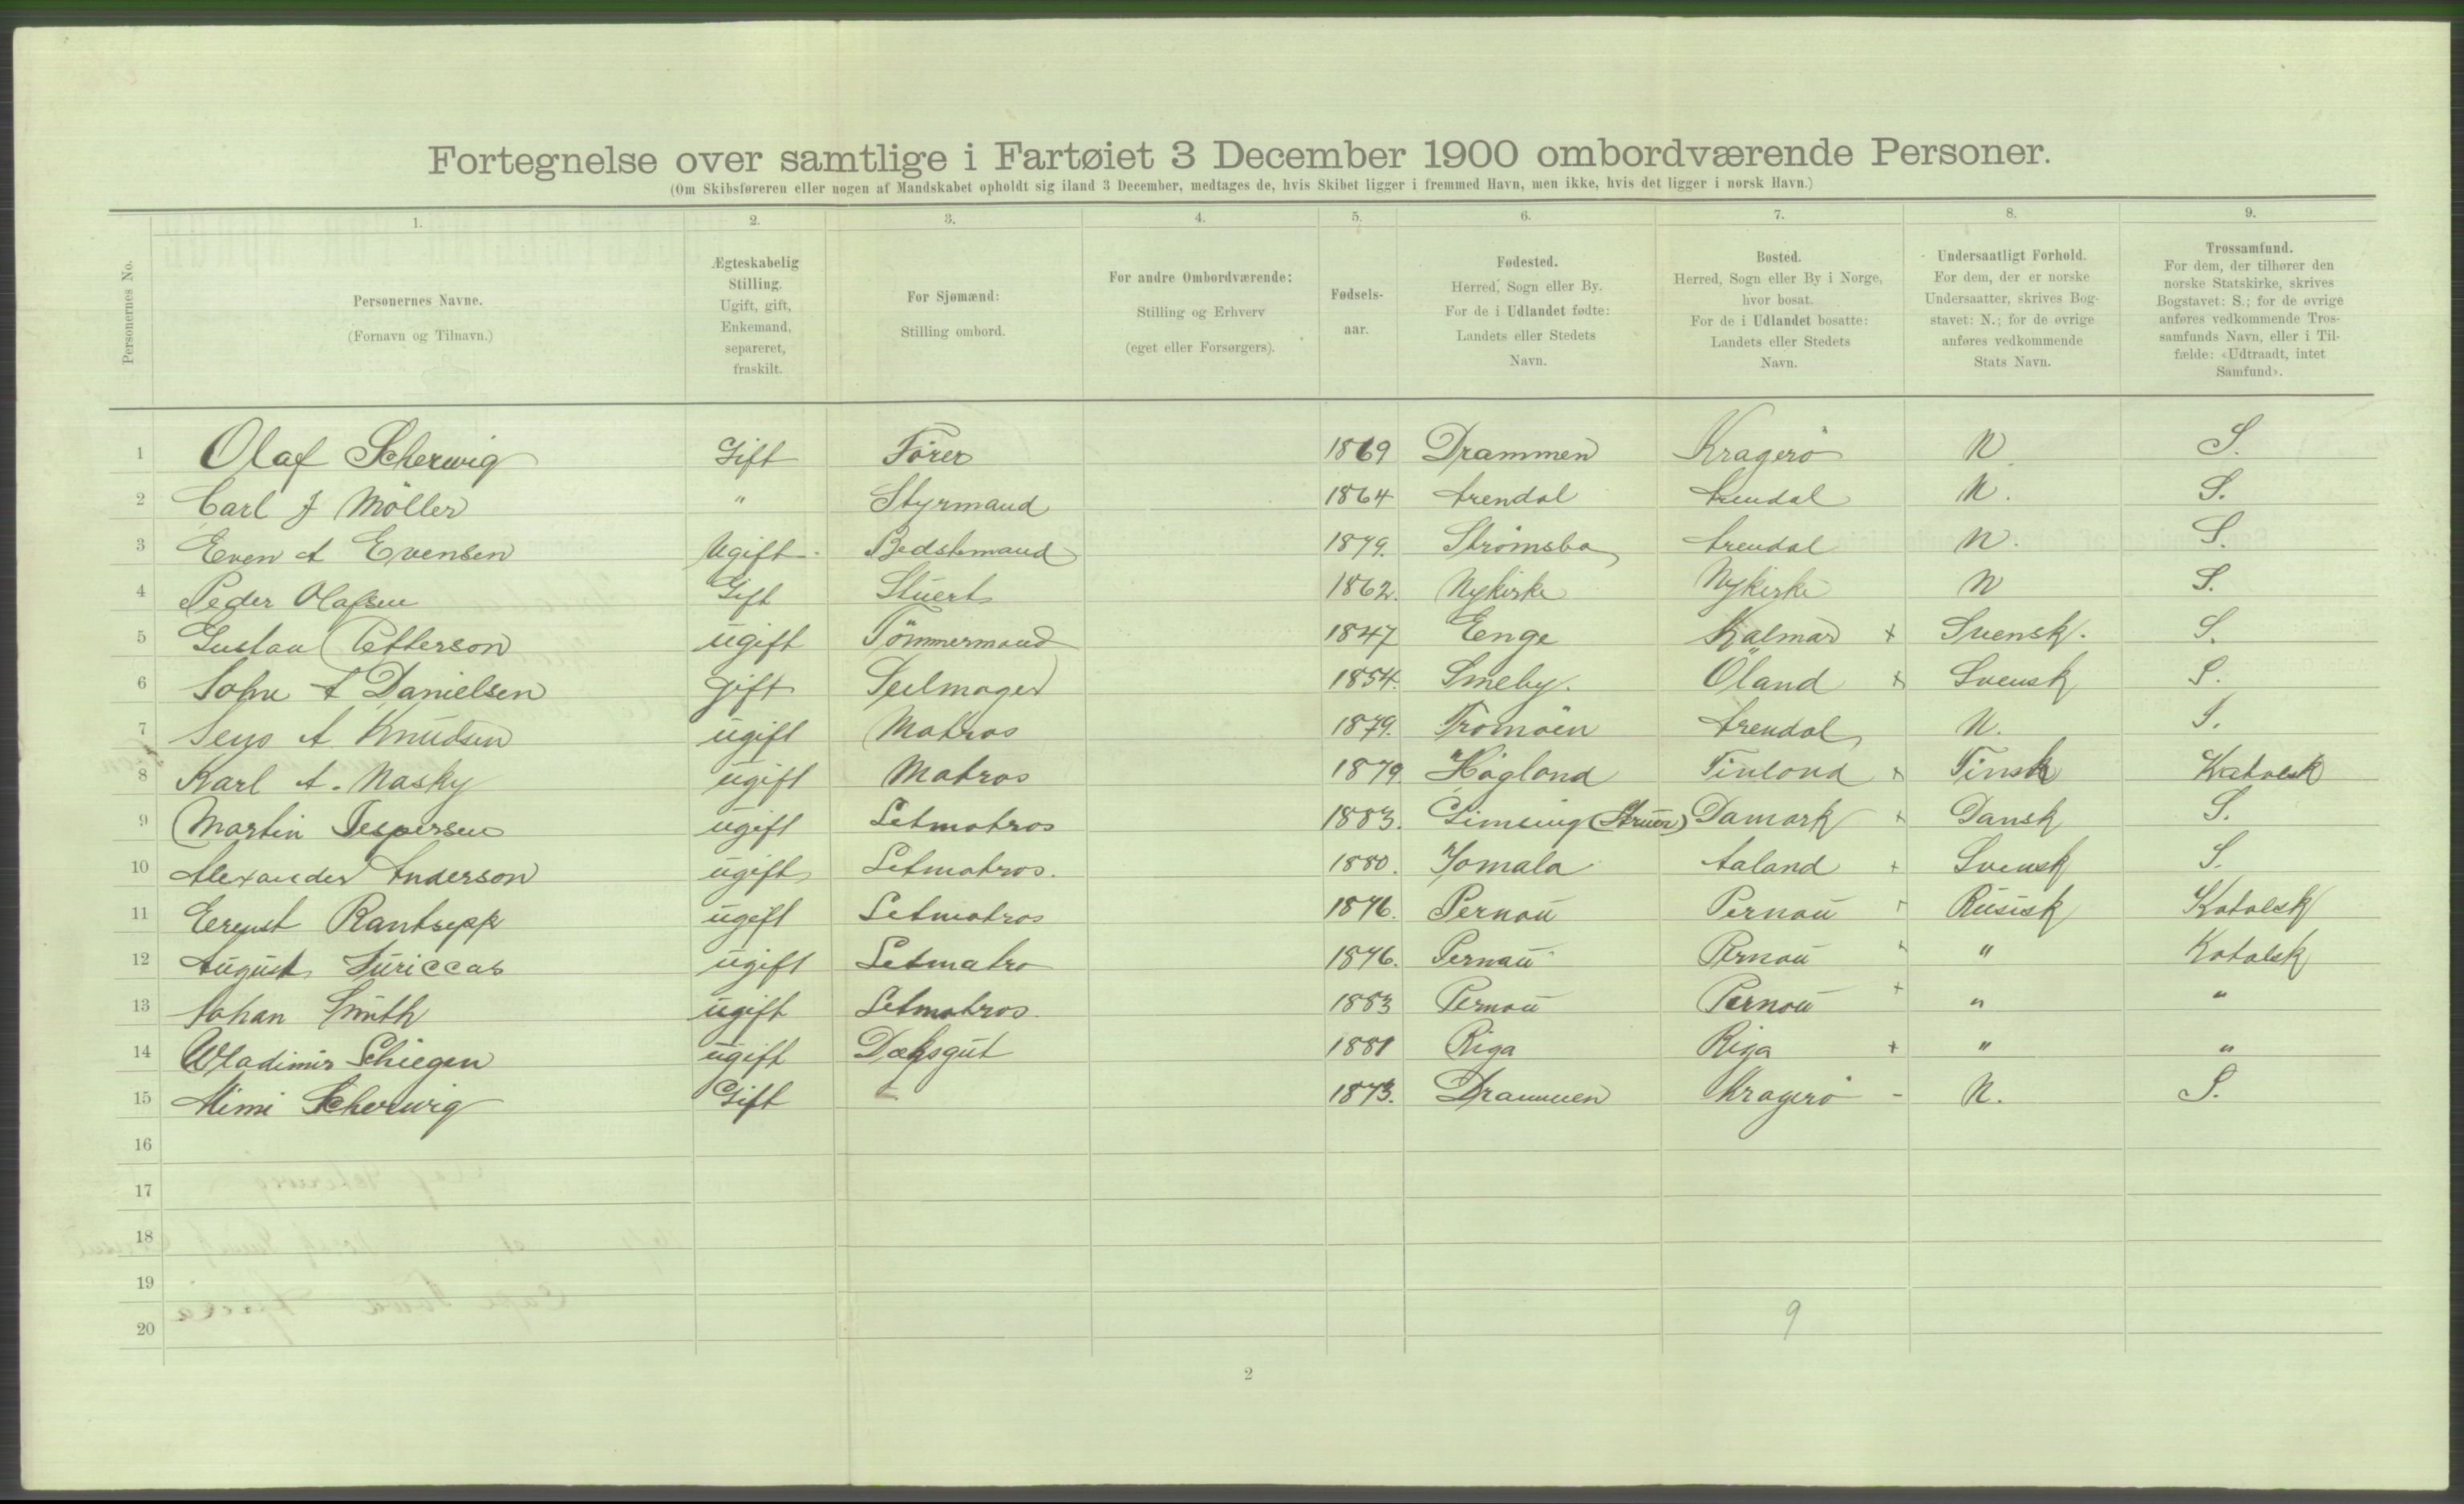 Fortegnelse over samtlige i Fartøiet 3 December 1900 ombordværende Personer.
(Om Skibsføreren eller nogen af Mandskabet opholdt sig iland 3 December, medtages de, hvis Skibet ligger i fremmed Havn, men ikke, hvis det ligger i norsk Havn.)
Personernes No. 1. 2. 3. 4. 5. 6. 7. 8. 9.
Personernes Navne. (Fornavn og Tilnavn.)
Ægteskabelig Stilling. Ugift, gift, Enkemand, separeret, fraskilt.
For Sjømænd: Stilling ombord.
For andre Ombordværende: Stilling og Erhverv (eget eller Forsørgers).
Fødsels-aar.
Fødested. Herred, Sogn eller By. For de i Udlandet fødte: Landets eller Stedets Navn.
Bosted. Herred, Sogn eller By i Norge, hvor bosat. For de i Udlandet bosatte: Landets eller Stedets Navn.
Undersaatligt Forhold. For dem, der er norske Undersaatter, skrives Bogstavet: N.; for de øvrige anføres vedkommende Stats Navn.
Trossamfund. For dem, der tilhører den norske Statskirke, skrives Bogstavet: S.; for de øvrige anføres vedkommende Trossamfunds Navn, eller i Tilfælde: «Udtraadt, intet Samfund».
1 Olaf Scherwig Gift Förer 1869 Drammen Kragerö N S.
2 Carl J Möller " Styrmand 1864 Arendal Arendal N. S.
3 Even A Evensen Ugift Bedstemand 1879. Strömsbo Arendal N. S.
4 Peder Olafsen Gift Stuert 1862. Nykirke Nykirke N S.
5 Gustav Petterson ugift Tömmermand 1847 Enge Kalmar + Svensk. S.
6 John A Danielsen gift Seilmager 1854. Smeby. Öland + Svensk S.
7 Jens A Knudsen ugift Matros 1879. Tromöen Arendal N. S.
8 Karl A. Nasky ugift Matros 1879 Högland Finland + Finsk Katolsk
9 Martin Jespersen ugift Letmatros 1883. Gimsing (Struer) Damark + Dansk S.
10 Alexander Anderson ugift Letmatros. 1880. Jomala Aaland + Svensk S.
11 Ernst Rantsepp ugift Letmatros 1876. Pernau Pernau + Rusisk Katolsk
12 August Juriccas ugift Letmatro 1876. Pernau Pernau + " Katolsk
13 Johan Smith ugift Letmatros 1883 Pernau Pernau + " "
14 Wladimir Schiegen ugift Dæksgut 1881 Riga Riga + " "
15 Mimi Scherwig Gift 1873. Drammen Kragerö - N. S.
16
17
18
19
20
9
2